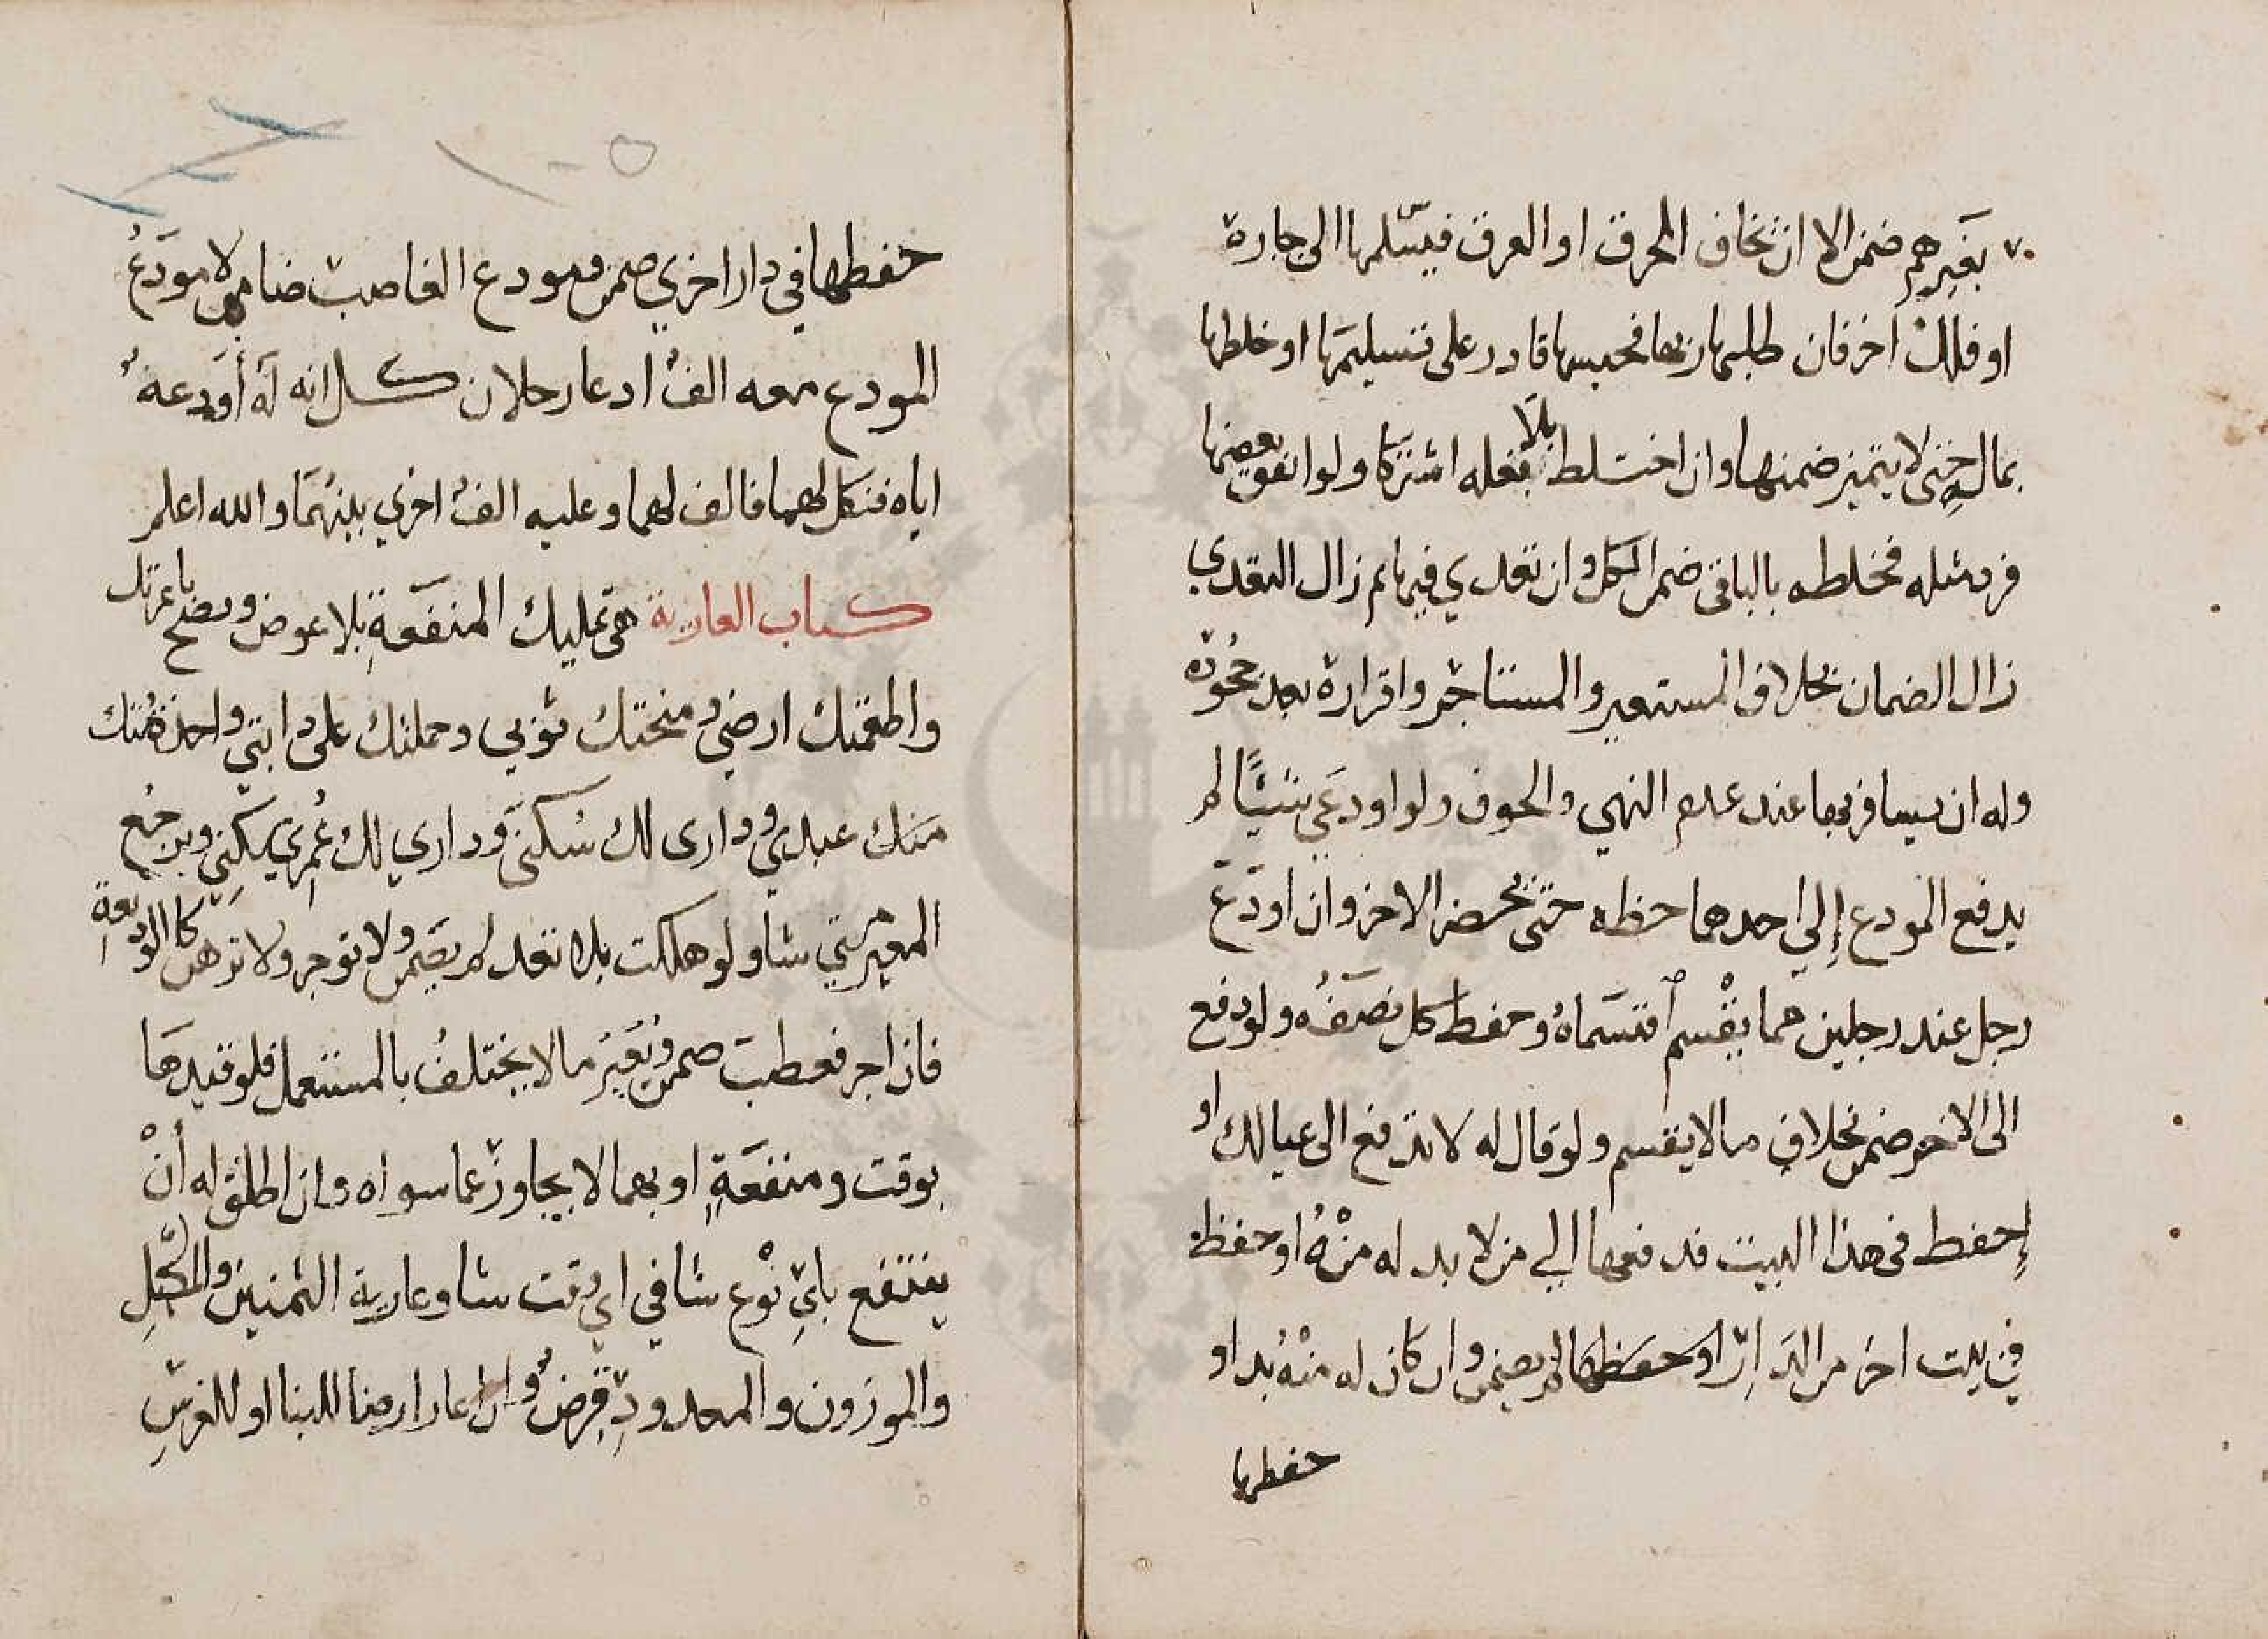 بغيرهم ضمن الا ان يخاف الحرق او الغرق فيسلمها الى جاره
او فلك اخر فان طلبها ربها فحبسها قادر على تسليمها او خلطها
بمال حتى لا يتميز ضمنها وان اختلط بلا فعله اشتركا ولو انفق بعضها
فرد مثله فخلطه بالباقي ضمن الكل وان تعدي فيها ثم زال التعدي
زال الضمان بخلاف المستعير والمستاجر واقراره بعد جحوده
وله ان يسافر بها عند عدم النهي والخوف ولو اودعى شيئا لم
يدفع المودع إلي احدهما حظه حتى يحضر الاخر وان اودع
رجل عند رجلين مما يقسم اقتسماه وحفظ كل نصفه ولو دفع
الى الاخر ضمن بخلاف مالا يقسم ولو قال له لا تدفع الى عيالك او
إحفظ في هذا البيت فدفعها الي من لا بد له منه او حفظ
في بيت اخر من الدار او حفظها لم يضمن وان كان له منه بد او
حفظها
حفظها في دار اخري ضمن ومودع الغاصب ضامن لا مودع
المودع معه الف ادعا رجلان كل انه له أودعه
اياه فنكل لهما فالف لهما وعليه الف اخري بينهما والله اعلم
كتاب العارية هي تمليك المنفعة بلا عوض وتصح باعرتك
واطعمتك ارضي ومنحتك ثوبي وحملتك على دابتي واخدمتك
منك عبدي وداري لك سكنى وداري لك عمري سكنى ويرجع
المعير متي شا ولو هلكت بلا تعد لم يضمن ولا توجر ولا ترهن كالوديعة
فان اجر فعطبت ضمن ويعير مالا يختلف بالمستعمل فلو قيدها
بوقت ومنفعة او بهما لا يجاوز عما سواه وان اطلق له أن
ينتفع باي نوع شا في اي وقت شا وعارية الثمنين والمكيل
والموزون والمعدود قرض وان اعار ارضا للبنا او للغرس